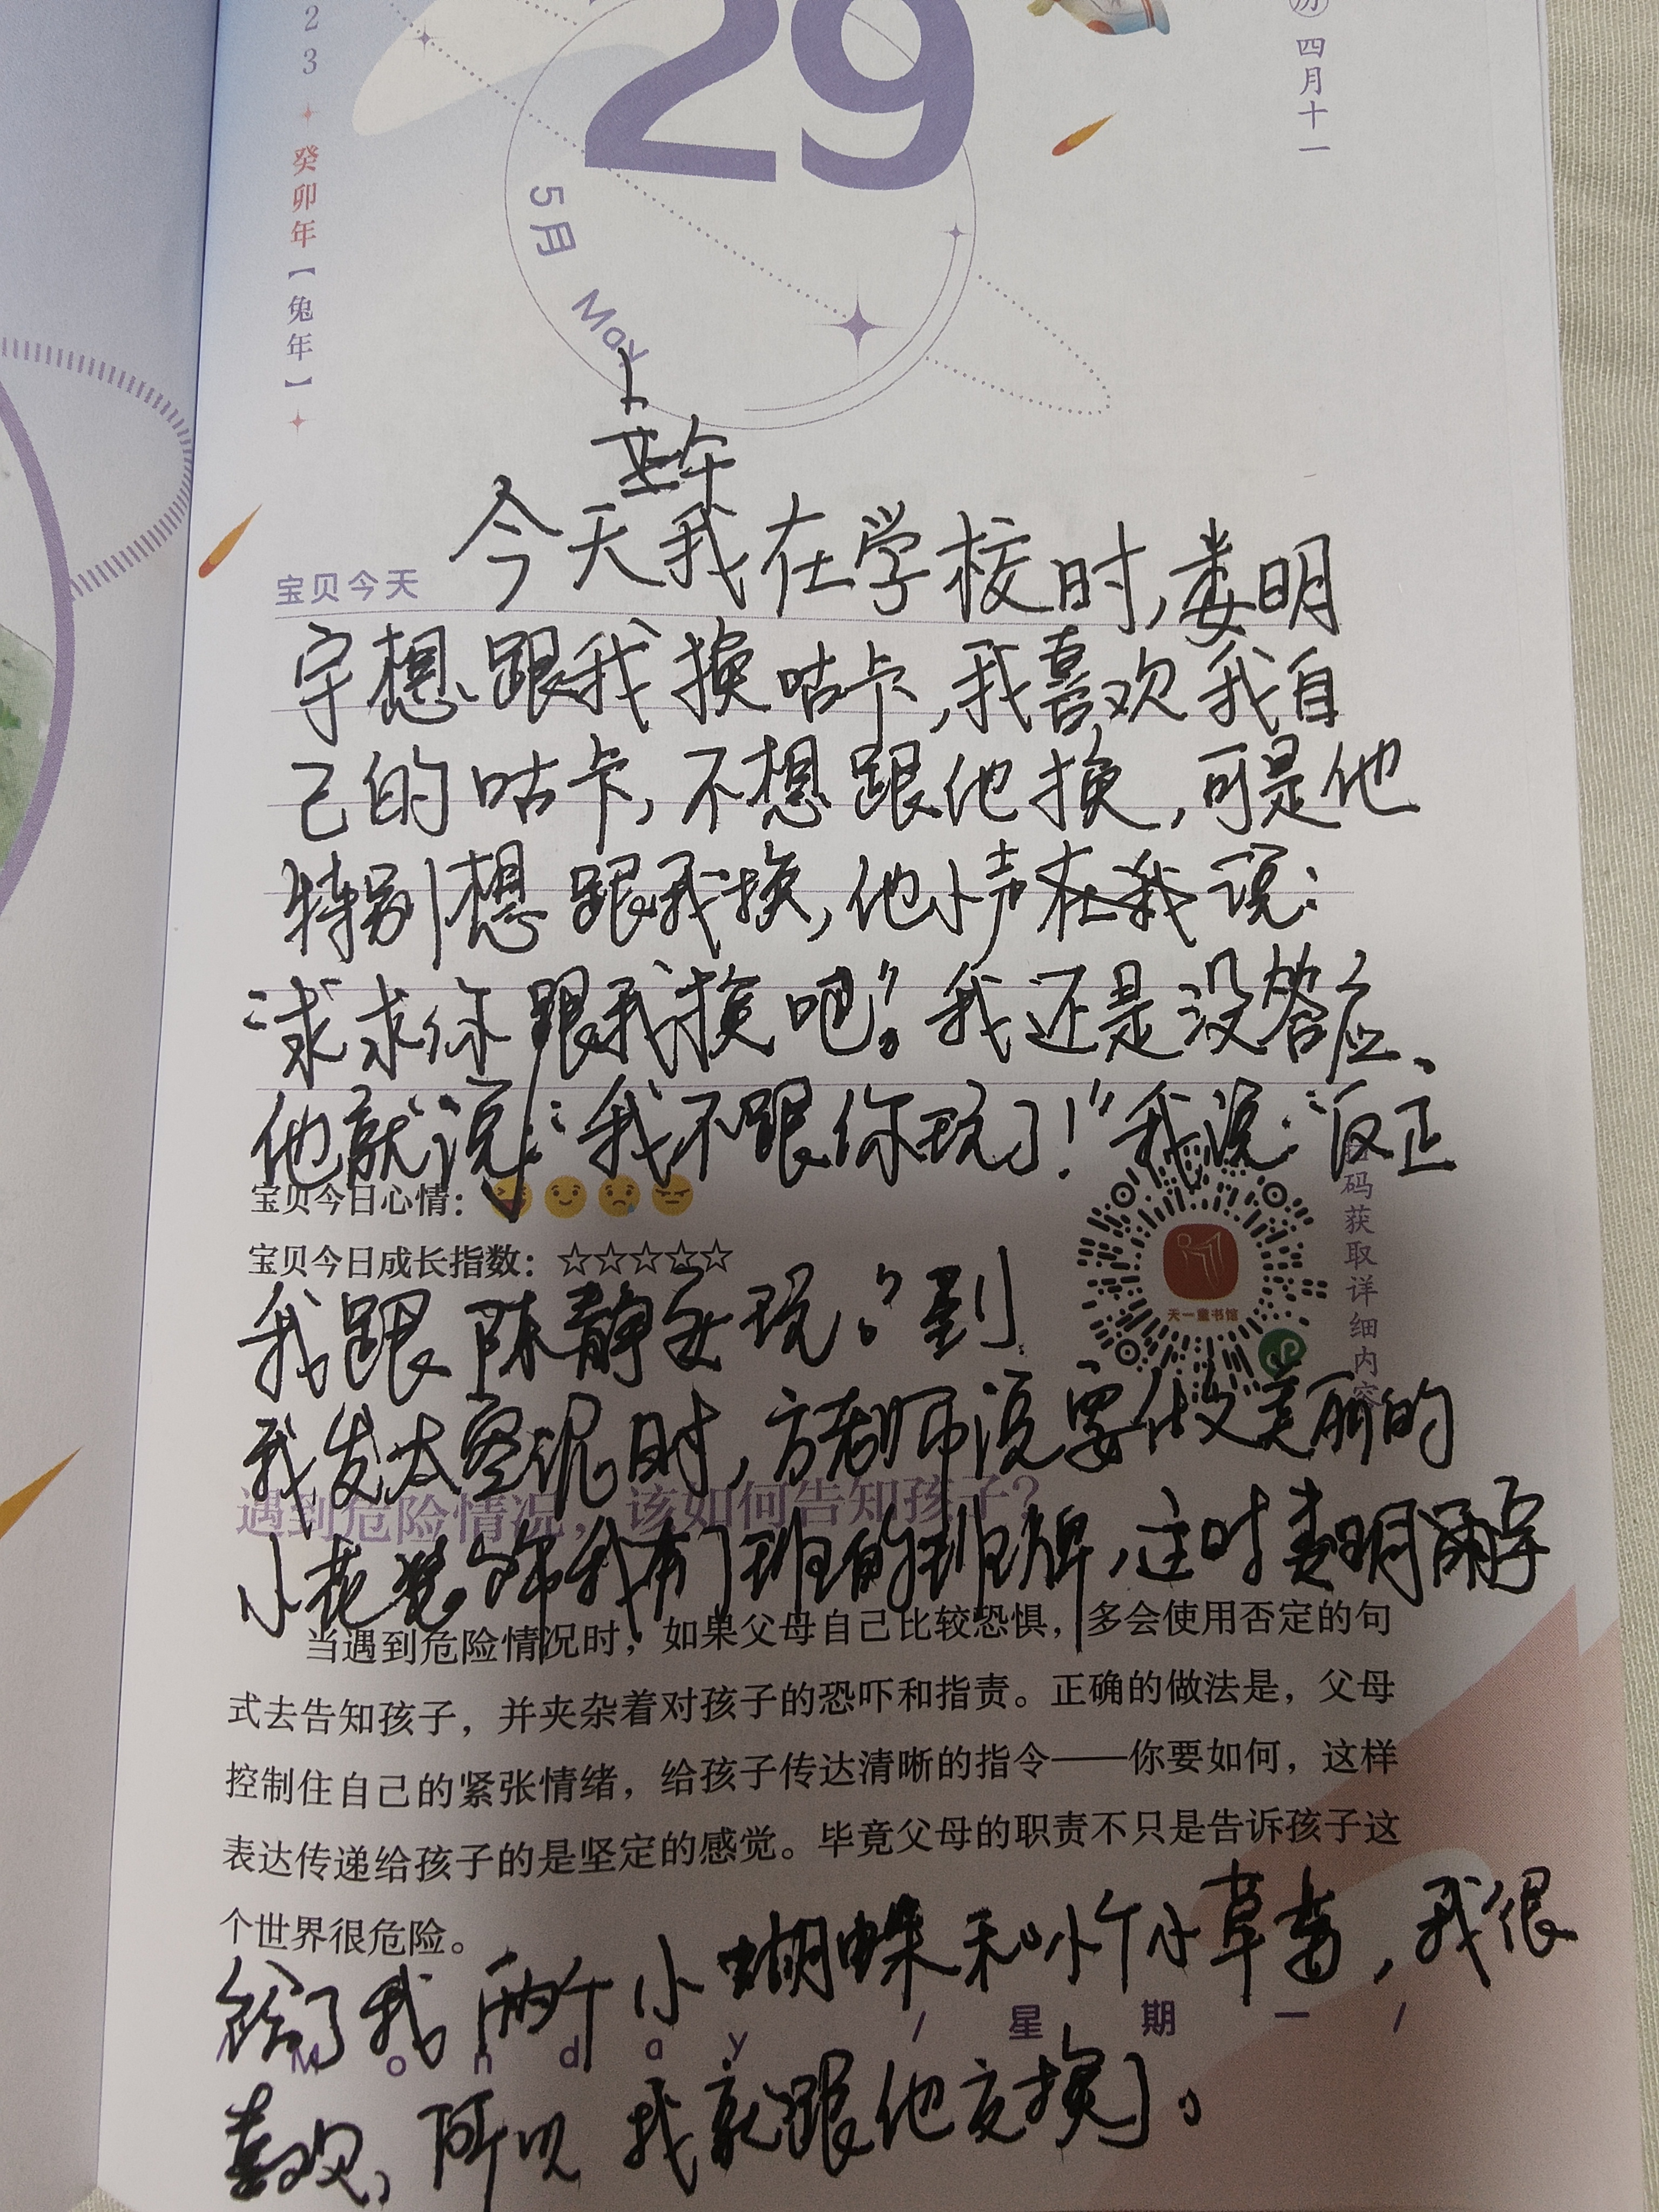 23
癸卯年【兔年】
29
5月
May
四月十一
今天我在学校时,娄明
宝贝今天
宇想跟我换咕卡,我喜欢我自
己的咕卡,不想跟他换,可是他
特别想跟我换,他小声在我说:
“求求你跟我换吧”。我还是没答应、
他就说:“我不跟你玩了!”我说:“反正
宝贝今日心情:
宝贝今日成长指数:☆☆☆☆☆
扫码获取详细内容
天一童书馆
我跟陈静 玩。”到
我发太空泥时,方老师说要做美丽的
遇到危险情况,该如何告知孩子?
小花装饰我们班的班牌,这时娄明宇
当遇到危险情况时,如果父母自己比较恐惧,多会使用否定的句
式去告知孩子,并夹杂着对孩子的恐吓和指责。正确的做法是,父母
控制住自己的紧张情绪,给孩子传达清晰的指令——你要如何,这样
表达传递给孩子的是坚定的感觉。毕竟父母的职责不只是告诉孩子这
个世界很危险。
给了我两个小蝴蝶和 个小草莓,我很
Monday / 星期一 /
喜欢,所以我就跟他交换了。